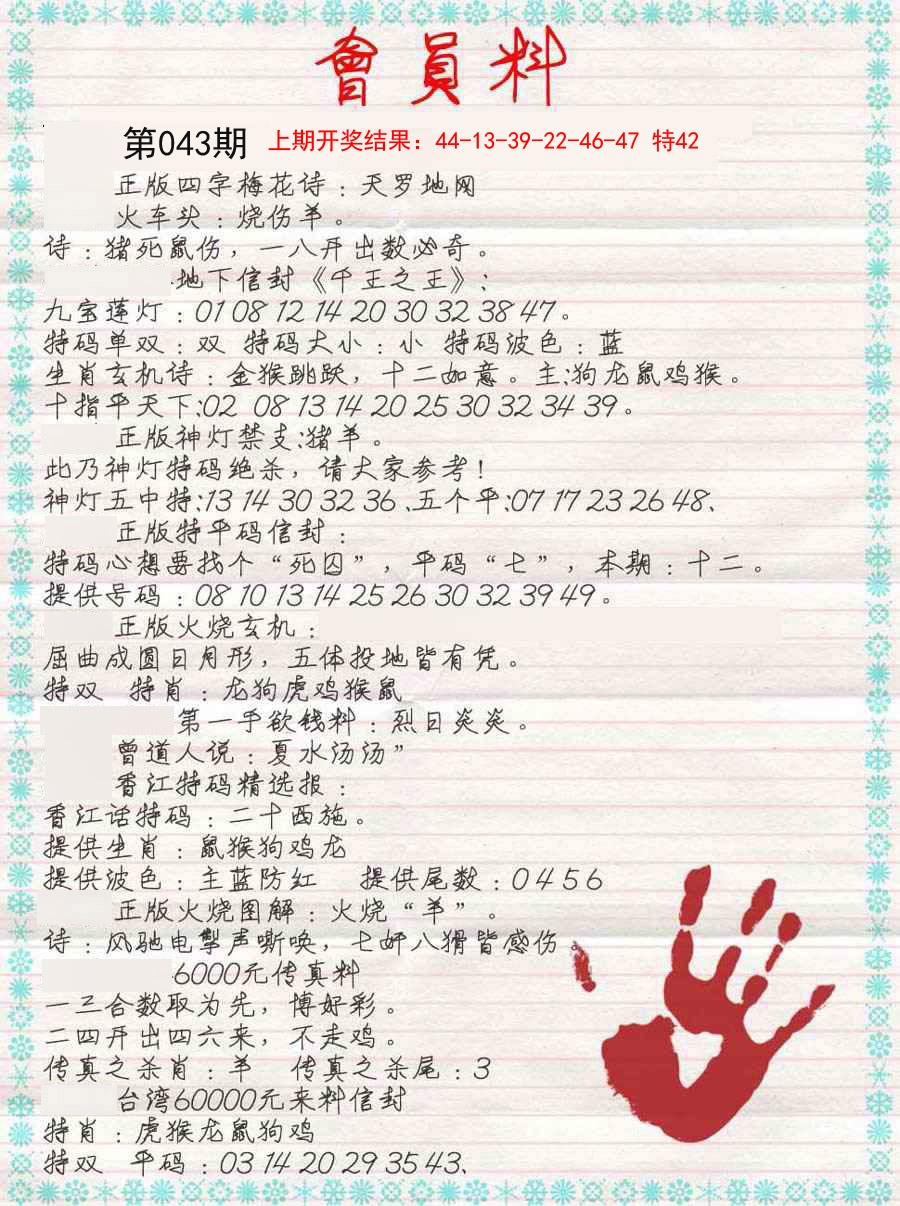 會員料
第043期 上期开奖结果：44-13-39-22-46-47 特42
正版四字梅花诗：天罗地网
火车头：烧伤羊。
诗：猪死鼠伤，一八开出数必奇。
地下信封《千王之王》：
九宝莲灯：01 08 12 14 20 30 32 38 47。
特码单双：双 特码大小：小 特码波色：蓝
生肖玄机诗：金猴跳跃，十二如意。主：狗龙鼠鸡猴。
十指平天下：02 08 13 14 20 25 30 32 34 39。
正版神灯禁支：猪羊。
此乃神灯特码绝杀，请大家参考！
神灯五中特：13 14 30 32 36、五个平：07 17 23 26 48、
正版特平码信封：
特码心想要找个“死囚”，平码“七”，本期：十二。
提供号码：08 10 13 14 25 26 30 32 39 49。
正版火烧玄机：
屈曲成圆日月形，五体投地皆有凭。
特双 特肖：龙狗虎鸡猴鼠
第一手欲钱料：烈日炎炎。
曾道人说：夏水汤汤”
香江特码精选报：
香江话特码：二十西施。
提供生肖：鼠猴狗鸡龙
提供波色：主蓝防红 提供尾数：0 4 5 6
正版火烧图解：火烧“羊”。
诗：风驰电掣声嘶唤，七奸八猾皆感伤。
6000元传真料
一三合数取为先，博好彩。
二四开出四六来，不走鸡。
传真之杀肖：羊 传真之杀尾：3
台湾60000元来料信封
特肖：虎猴龙鼠狗鸡
特双 平码：03 14 20 29 35 43、